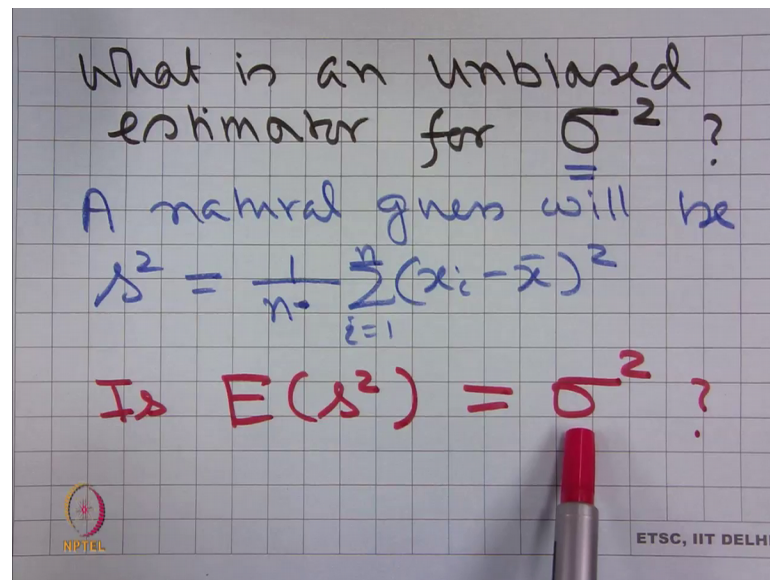 What is an unbiased
estimator for σ² ?
A natural guess will be
s² = 1/n Σⁿᵢ₌₁ (xᵢ - x̄)²
Is E(s²) = σ² ?
NPTEL
ETSC, IIT DELHI